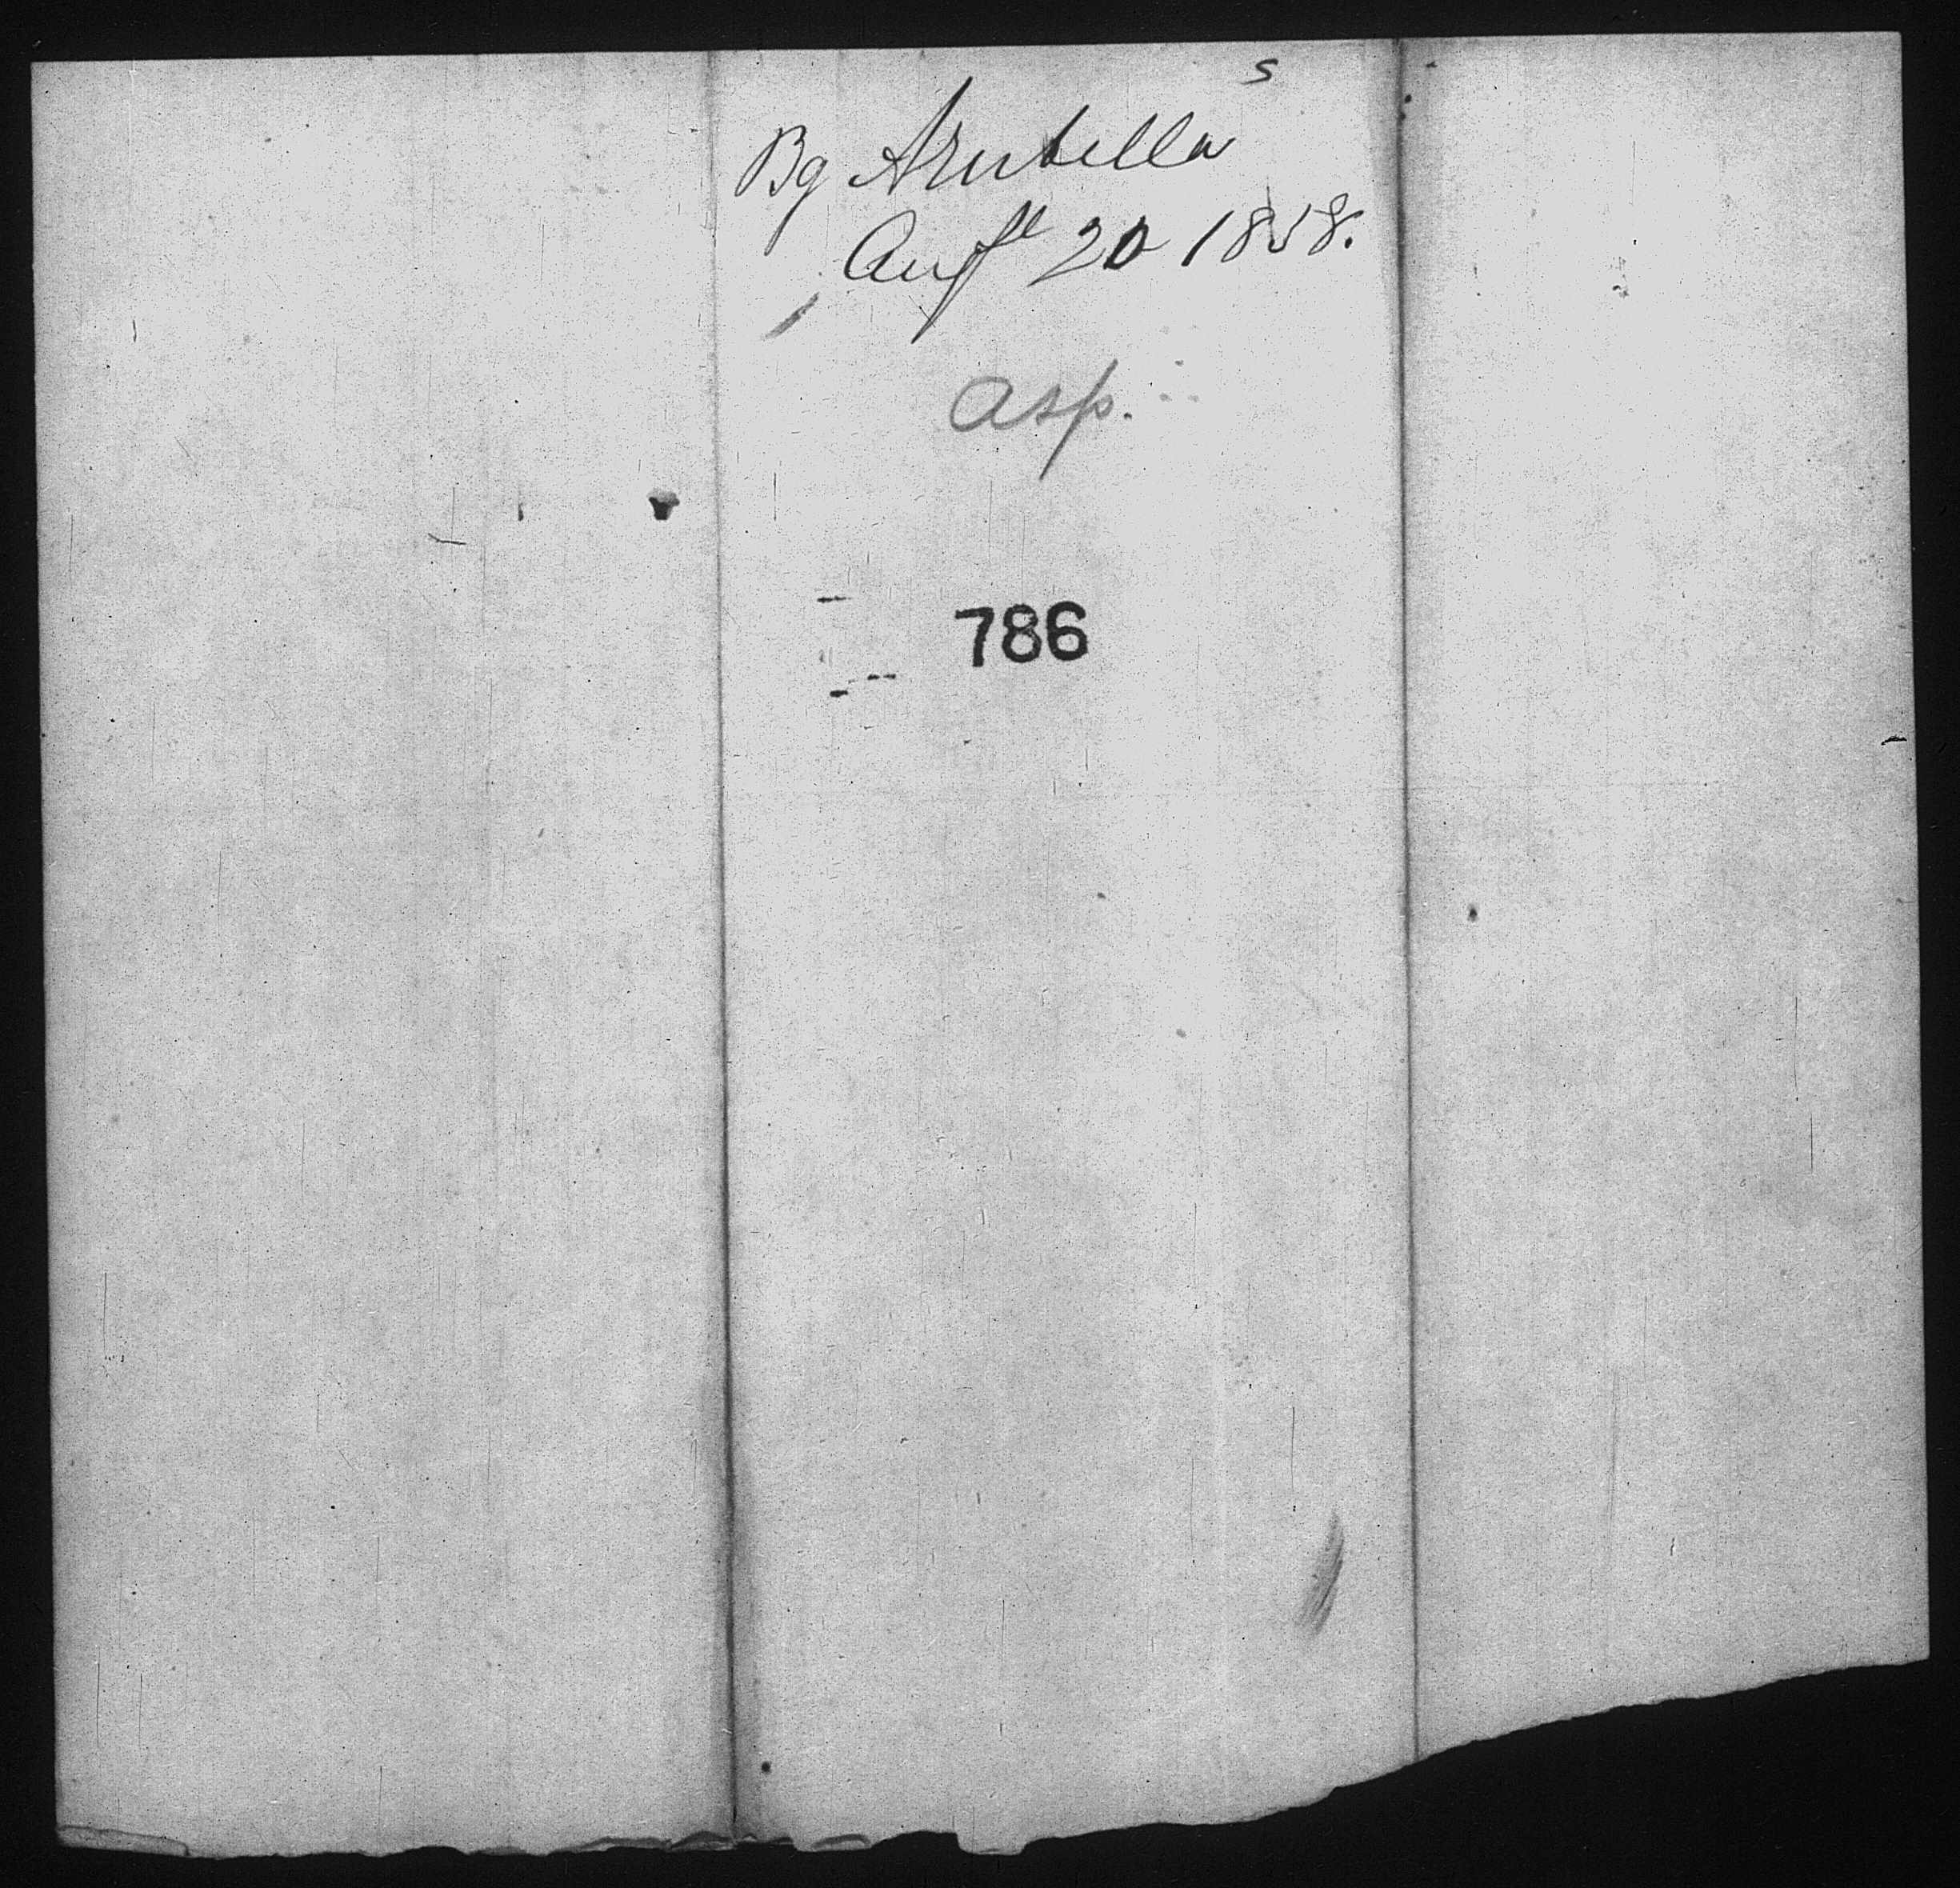 5
Bg Arabella
Augt 20 1858.
asp.
786